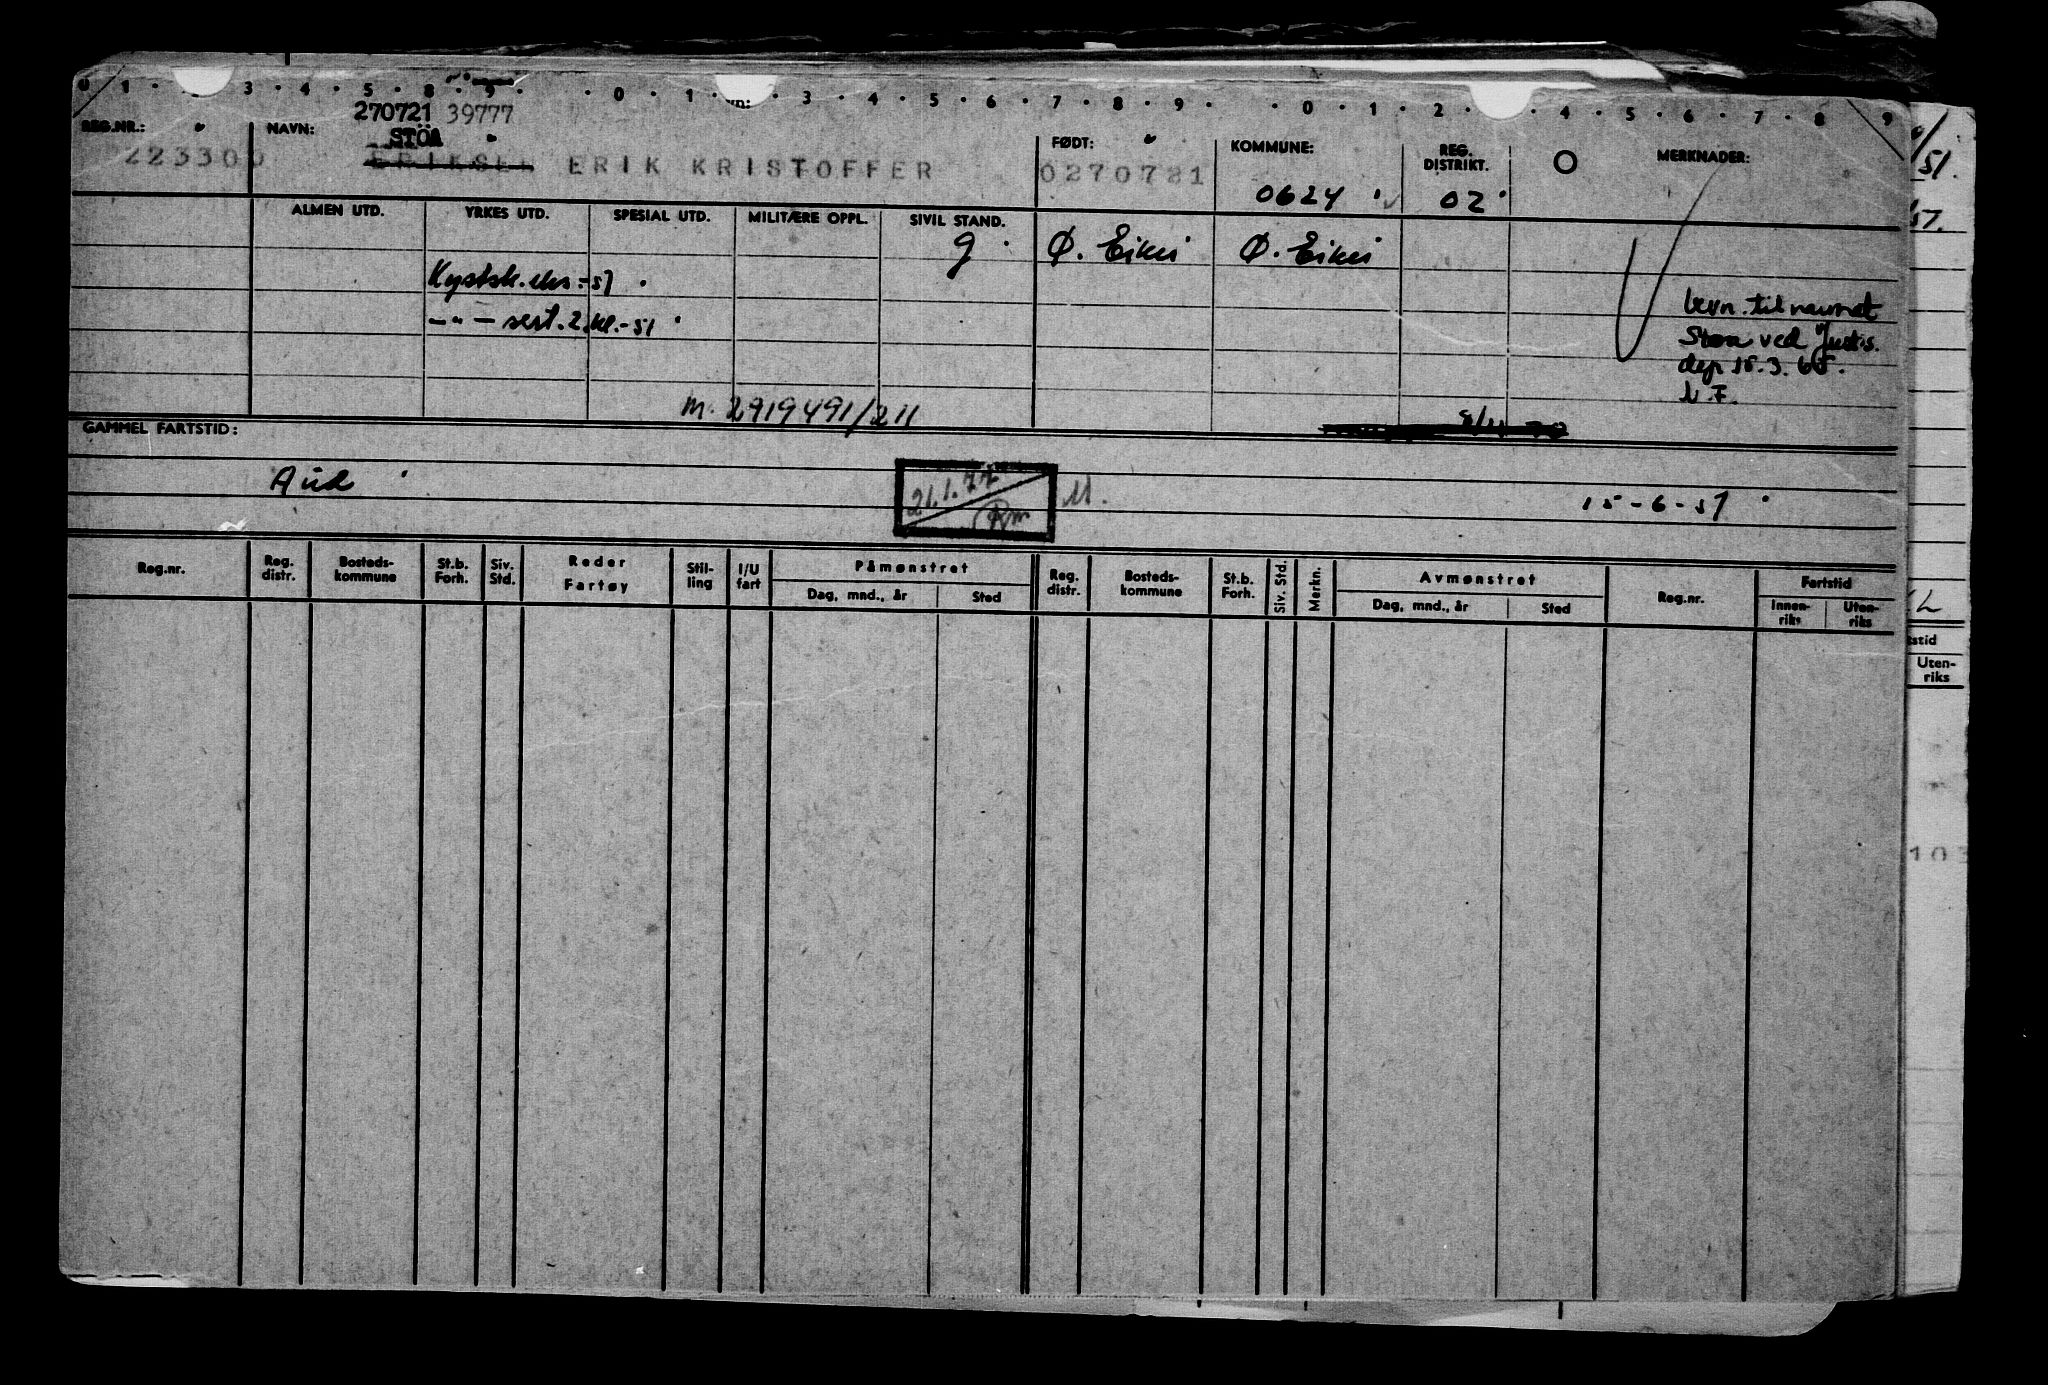 0 1 · 3 · 4 · 5 · 8 · 9 · · 0 · 1 · vn: · 3 · 4 · 5 · 6 · 7 · 8 · 9 · · 0 · 1 · 2 · · 4 · 5 · 6 · 7 · 8 · 9
270721 39777
REG.NR.: NAVN: STÖA FØDT: KOMMUNE: REG. DISTRIKT. O MERKNADER:
223300 ERIKSEN ERIK KRISTOFFER 0270721 0624 02
ALMEN UTD. YRKES UTD. SPESIAL UTD. MILITÆRE OPPL. SIVIL STAND.
g Ø. Eiker Ø. Eiker
Kystsk. eks. -51
— " — sert. 2. kl. - 51
bevn. til navnet
Støa ved Justis.
dep 15.3.65.
M. 2919491/211
GAMMEL FARTSTID:
Aud
21.1.77
M.
15-6-51
Reg.nr. Reg. distr. Bosteds- kommune St.b. Forh. Siv. Std. Reder Fartøy Stil- ling I/U fart Påmønstret Reg. distr. Bosteds- kommune St.b. Forh. Siv. Std. Merkn. Avmønstret Reg.nr. Fartstid
Dag, mnd., år Sted Dag, mnd., år Sted Innen- riks Uten- riks
51.
stid
Uten-
riks
10